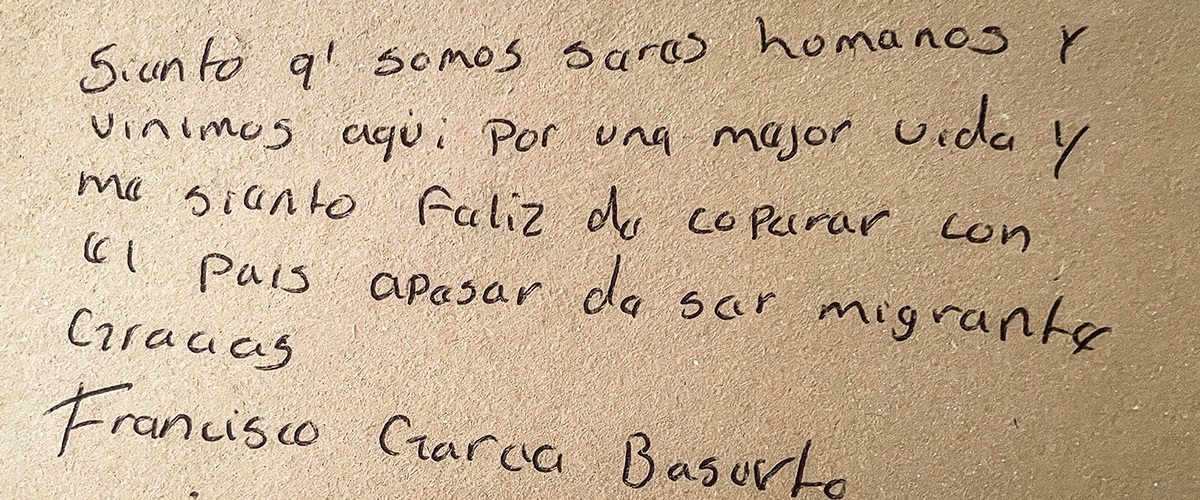 Siento q' somos seres homanos y
vinimos aqui por una mejor vida y
me siento feliz de coperar con
el pais apesar de ser migrante
Gracias
Francisco Garcia Basurto